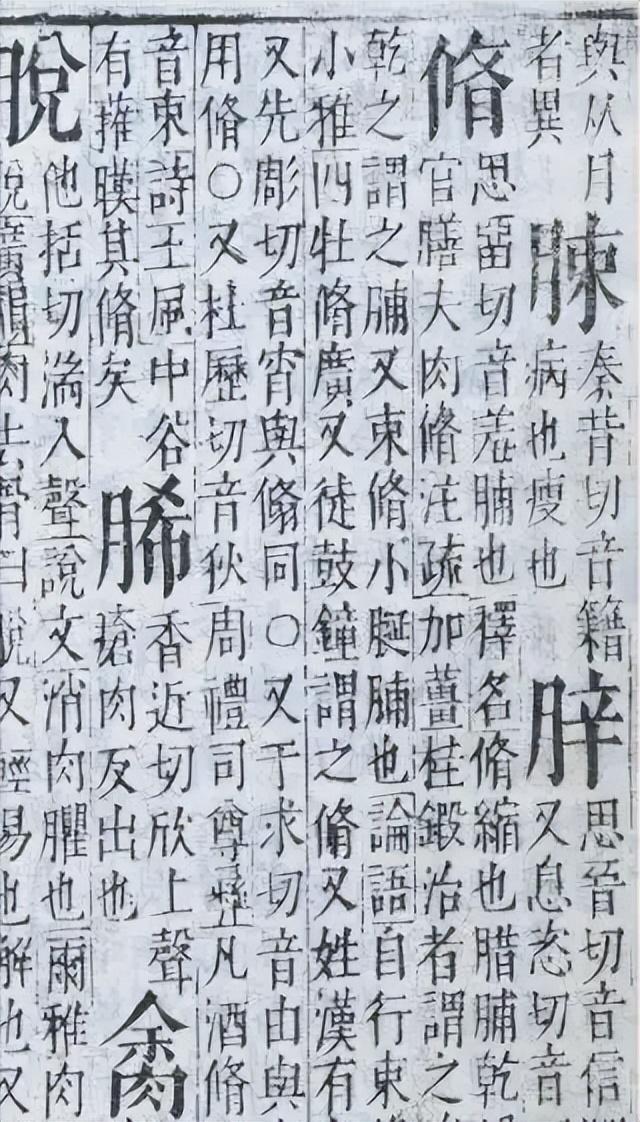 與从月
者異
脨
秦昔切音籍
病也瘦也
思晉切音信
又息恣切音
脩
思畱切音羞脯也釋名脩縮也腊脯乾
官膳夫肉脩注疏加薑桂鍛治者謂之
乾之謂之脯又束脩小脡脯也論語自行束
小雅四牡脩廣又徒鼓鐘謂之脩又姓漢有
又先彫切音宵與翛同○又于求切音由與
用脩○又杜歷切音狄周禮司尊彝凡酒脩
音束詩王風中谷
有蓷暵其脩矣
脪
香近切欣上聲
瘡肉反出也
脫
他括切湍入聲說文消肉臞也爾雅肉
脫廣韻肉去骨曰脫又輕易也解也又